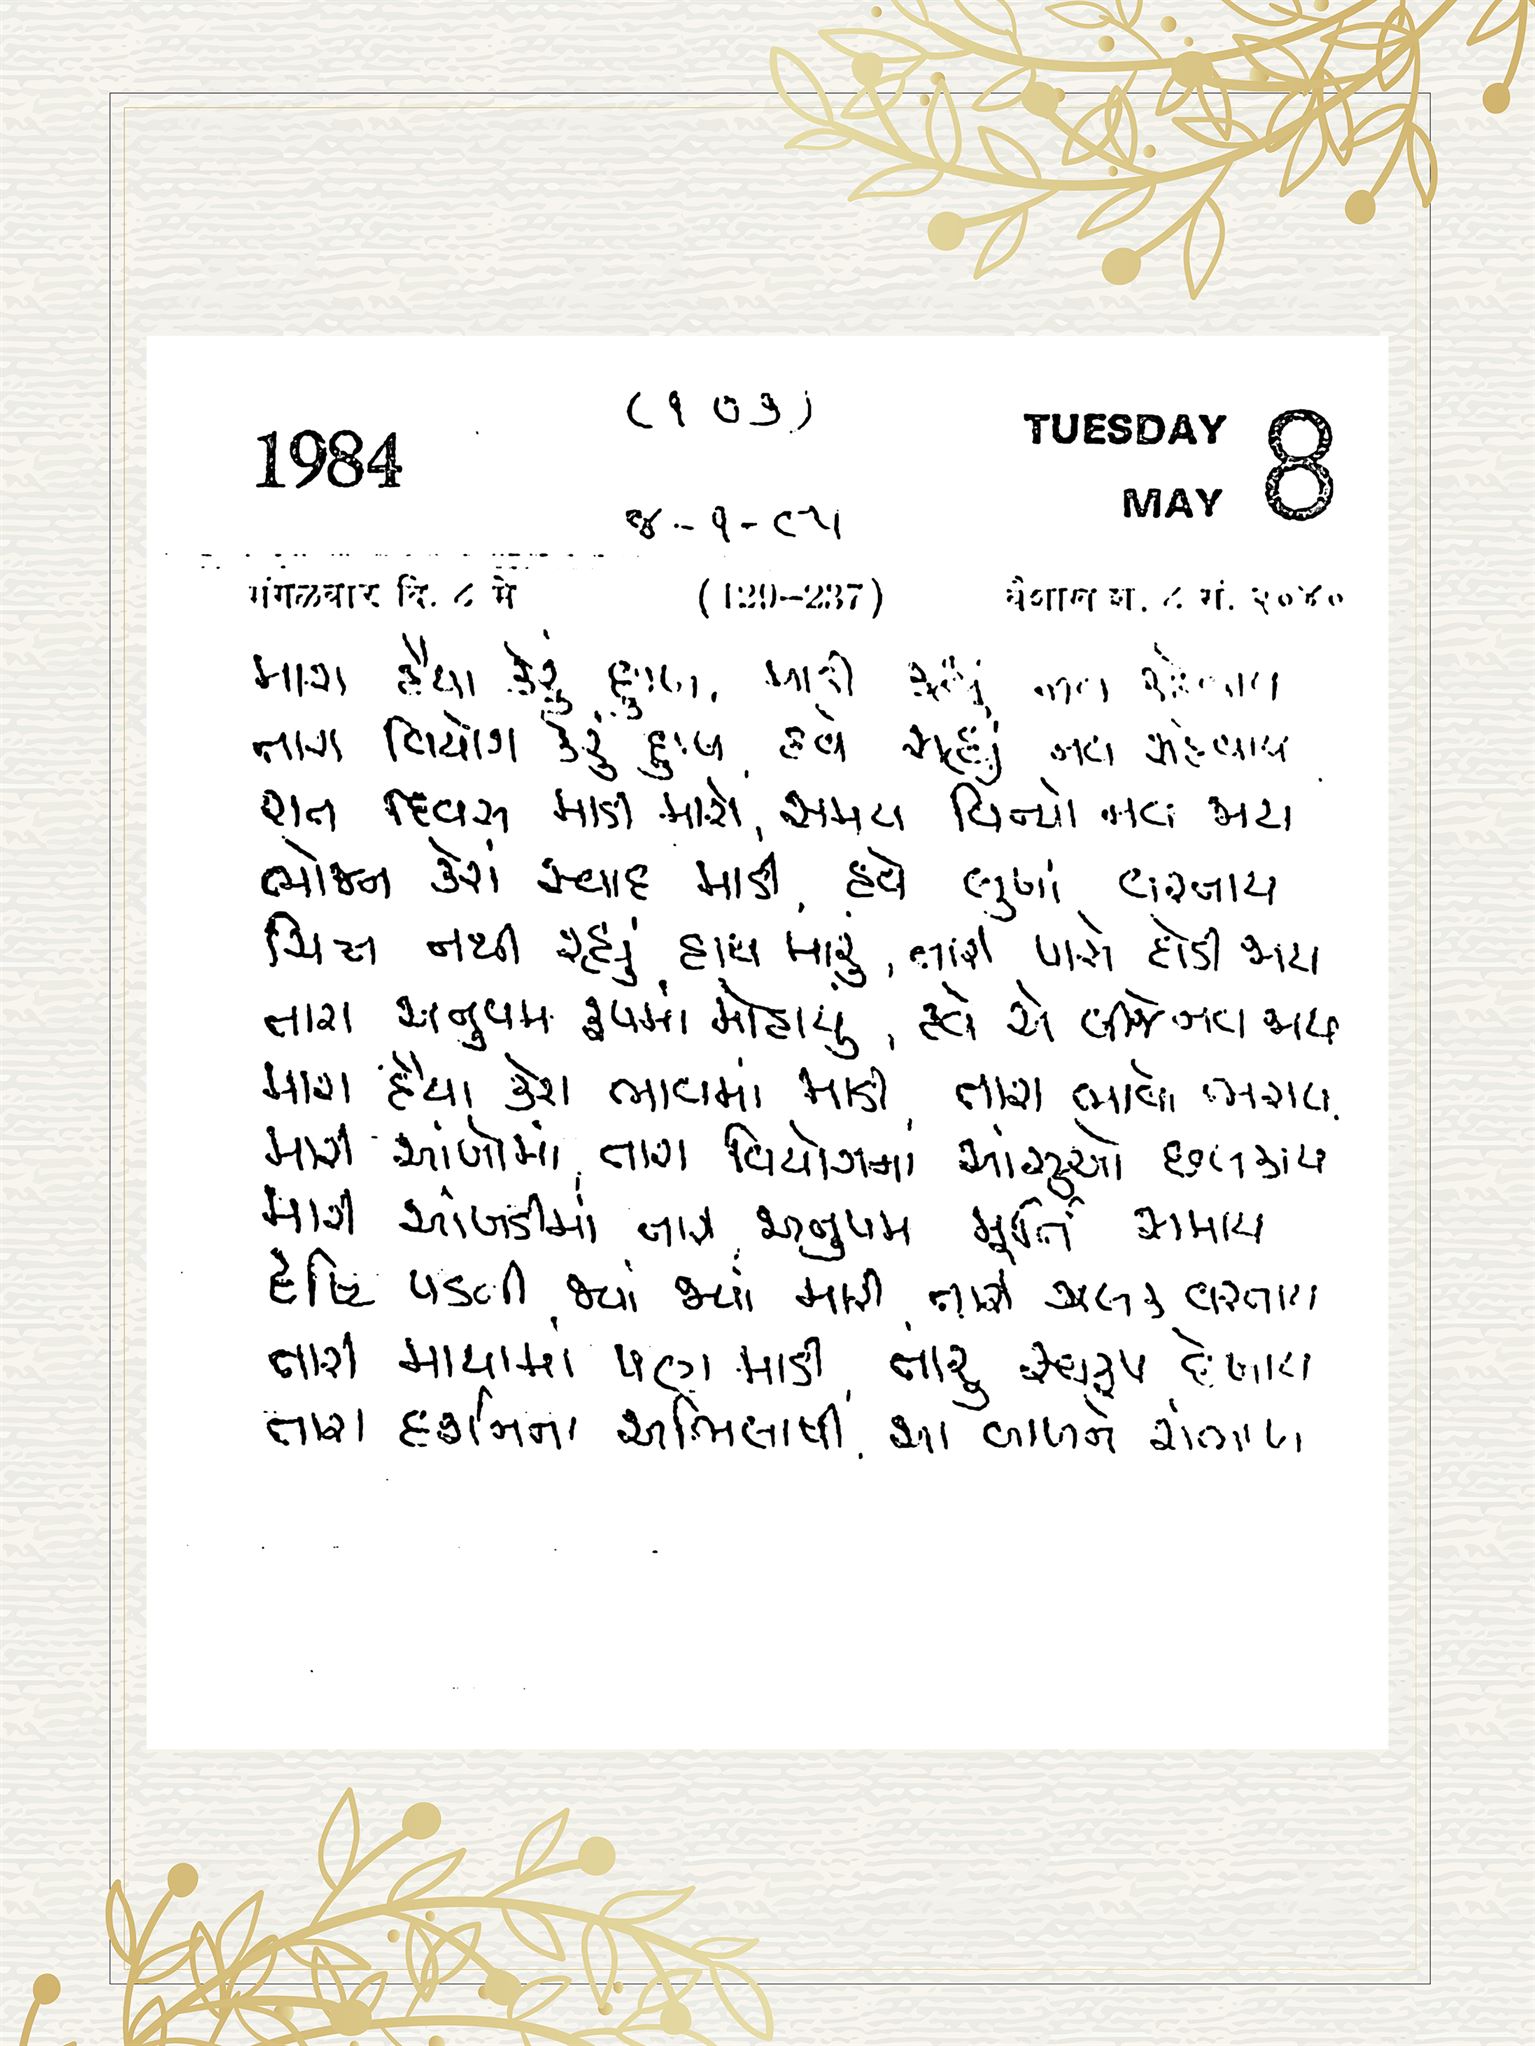 (૧૭૩)
1984
TUESDAY 8
MAY
૪-૧-૮૫
मंगळवार दि. ८ मे (129-237) वैशाख शु. ८ सं. २०४०
મારા હૈયા કેરું દુઃખ, માડી સહ્યું નવ સહેવાય
તારા વિયોગ કેરું દુઃખ, હવે સહ્યું નવ સહેવાય
રાત દિવસ માડી મારો, સમય વિત્યો નવ જાય
ભોજન કેરાં સ્વાદ માડી, હવે લુખાં વરતાય
ચિત્ત નથી રહ્યું હાથ મારું, તારી પાસે દોડી જાય
તારા અનુપમ રૂપમાં મોહાયું, હવે એ બીજે નવ જાય
મારા હૈયા કેરા ભાવમાં માડી, તારા ભાવો ભરાય
મારી આંખોમાં, તારા વિયોગનાં આંસુઓ છલકાય
મારી આંખડીમાં તારી, અનુપમ મૂર્તિ સમાય
દૃષ્ટિ પડતી, જ્યાં જ્યાં મારી, તારી ઝલક વરતાય
તારી માયામાં પણ માડી, તારું સ્વરૂપ દેખાય
તારા દર્શનના અભિલાષી, આ બાળને સંભાળ